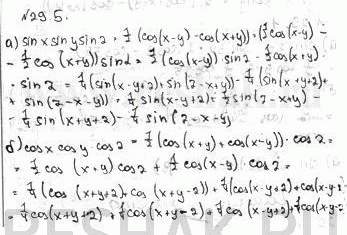 №29.5.
а) sin x sin y sin z = ½ (cos(x-y) - cos(x+y)) = (½ cos(x-y) -
- ½ cos(x+y)) sin z = ½ cos(x-y) · sin z - ½ cos(x+y) ·
· sin z = ¼ (sin(x-y+z) + sin(z-x+y)) - ¼ (sin(x+y+z) +
+ sin(z-x-y)) = ¼ sin(x-y+z) + ¼ sin(z-x+y) -
- ¼ sin(x+y+z) - ¼ sin(z-x-y)
б) cos x cos y cos z = ½ (cos(x+y) + cos(x-y)) · cos z =
= ½ cos(x+y) cos z + ½ cos(x-y) cos z =
= ¼ (cos(x+y+z) + cos(x+y-z)) + ¼ (cos(x-y+z) + cos(x-y-z
= ¼ cos(x+y+z) + ¼ cos(x+y-z) + ¼ cos(x-y+z) + ¼ cos(x-y-z